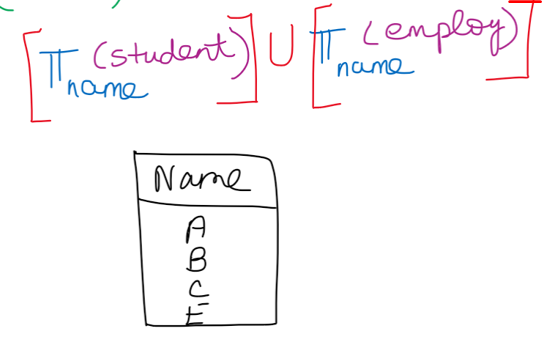 [π name (student)] ∪ [π name (employ)]
Name
A
B
C
E